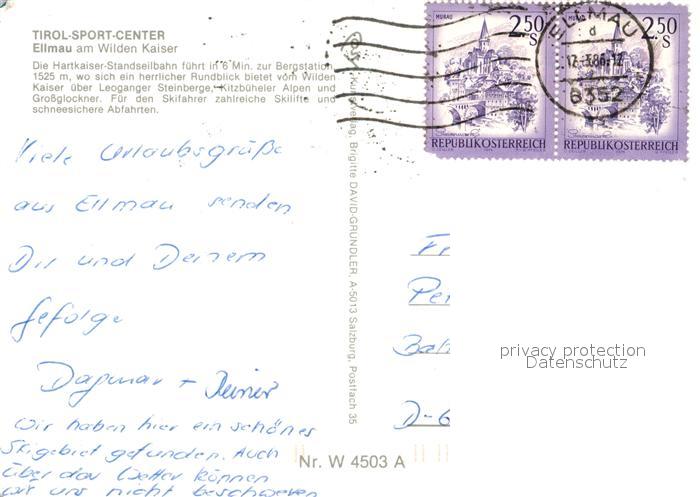 TIROL-SPORT-CENTER
Ellmau am Wilden Kaiser
Die Hartkaiser-Standseilbahn führt in 6 Min. zur Bergstation
1525 m, wo sich ein herrlicher Rundblick bietet vom Wilden
Kaiser über Leoganger Steinberge, Kitzbüheler Alpen und
Großglockner. Für den Skifahrer zahlreiche Skilifte und
schneesichere Abfahrten.
Viele Urlaubsgrüße
aus Ellmau senden
Dir und Deinem
Gefolge
Dagmar + Rainer
Wir haben hier ein schönes
Skigebiet gefunden. Auch
über das Wetter können
wir uns nicht beschweren
Kunstverlag, Brigitte DAVID-GRUNDLER, A-5013 Salzburg, Postfach 35
Nr. W 4503 A
MURAU 2.50 S
REPUBLIK ÖSTERREICH
MURAU 2.50 S
REPUBLIK ÖSTERREICH
ELLMAU
d
6352
Fr
Per
D-6
privacy protection
Datenschutz